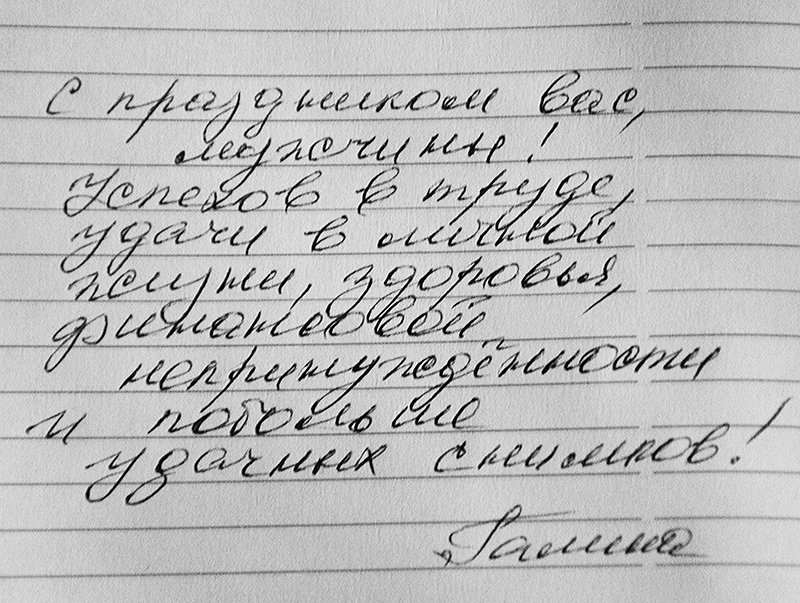 С праздником вас,
мужчины!
Успехов в труде,
удачи в личной
жизни, здоровья,
финансовой
непринуждённости
и побольше
удачных снимков!
Галина